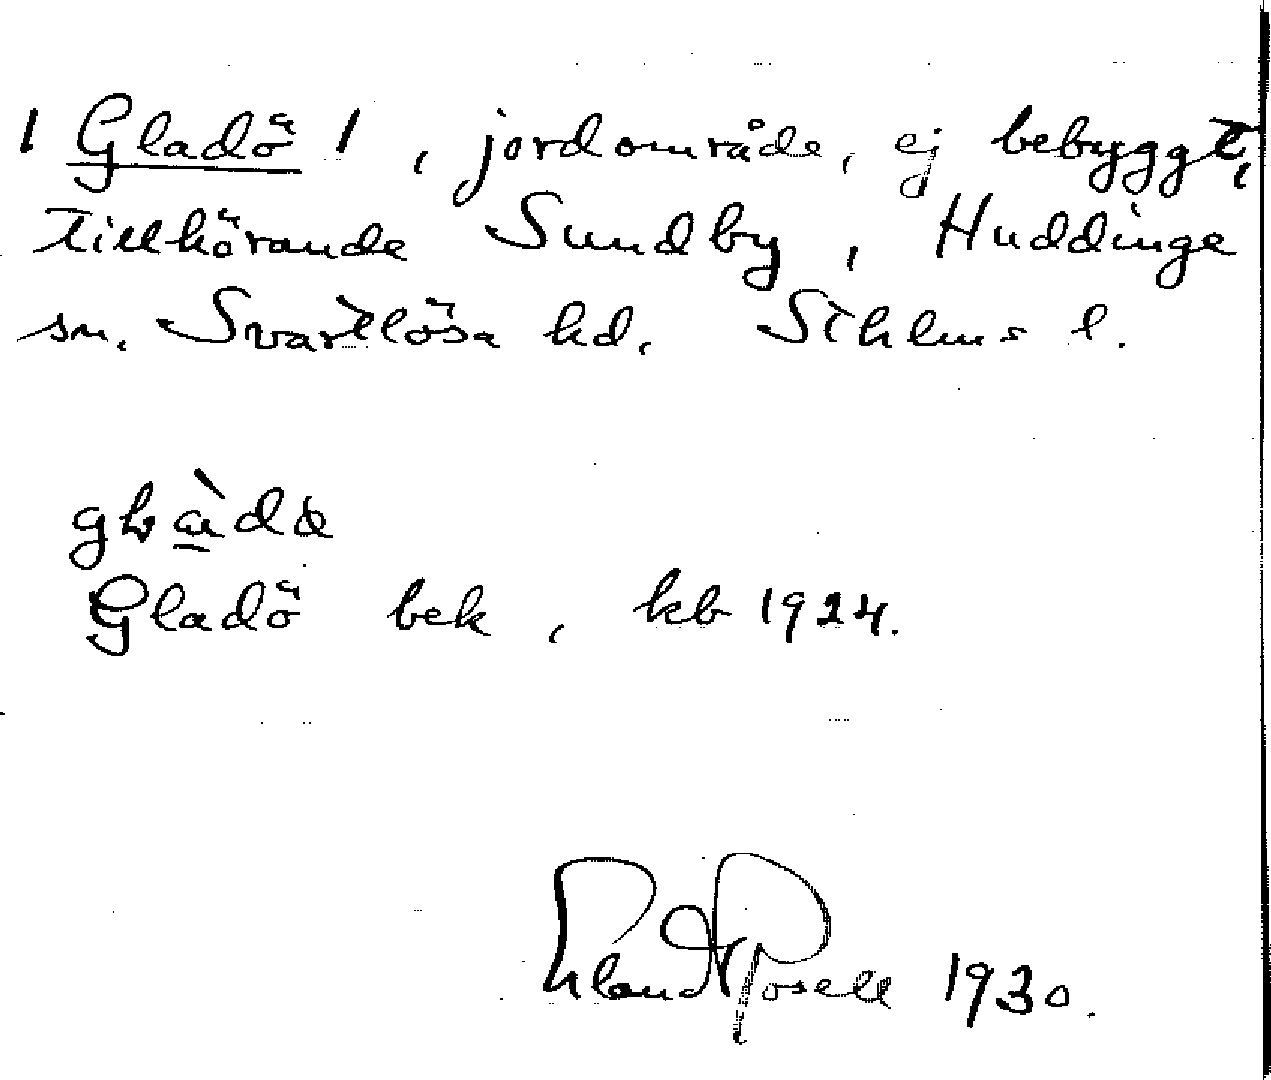 / Gladö / , jordområde, ej bebyggt,
tillhörande Sundby, Huddinge
sn. Svartlösa hd. Sthlms l.
Gladö bek, kb 1924.
1930.